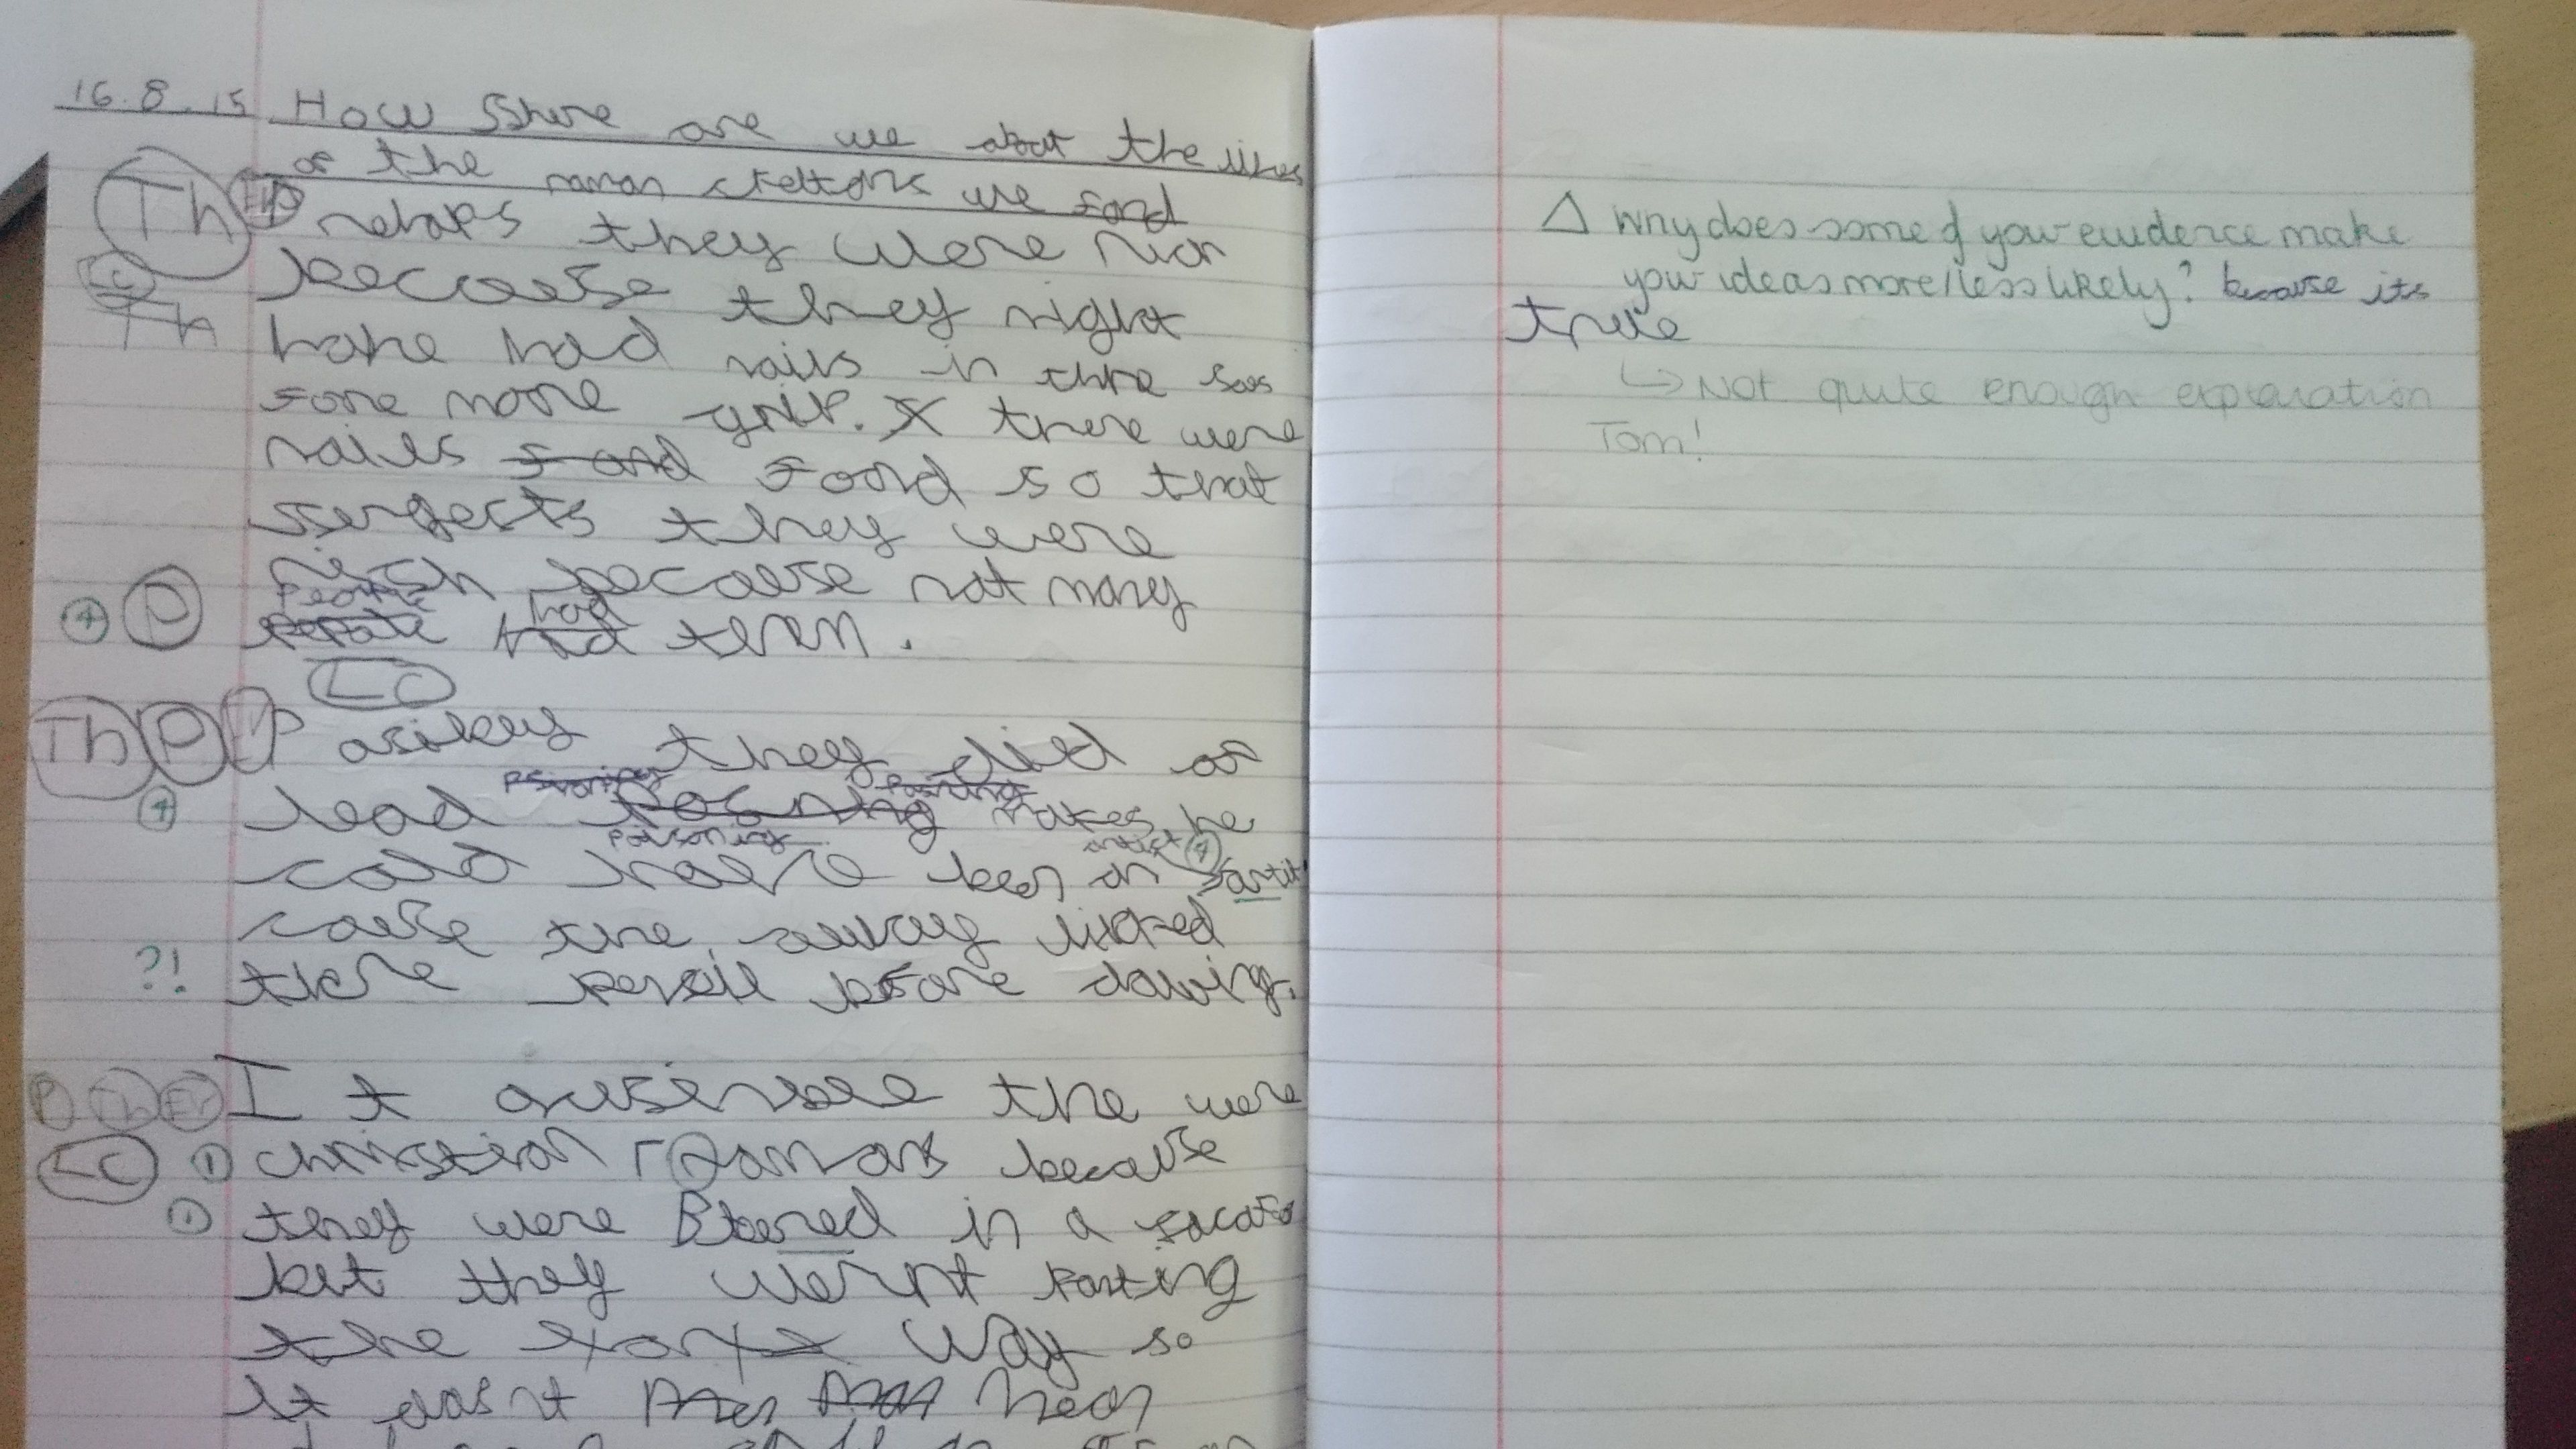 16.8.15 How Sshure are we about the lives
of the roman skeltons we fond
Th Ev rehaps they were rich
LC becoeuse they might
Th have had nails in thre soes
fore more grip. there were
nails fond foond so that
sergests they were
rich because not many
4 P people had
had them.
LC
Th P Ev
they died of
lead poisoning makes he
poisoning artist 4
cold have been an artit
cause the alway licked
?! there pensil before dawing.
P Th Ev It the were
LC 1 christian romans because
1 they were Bbered in a
but they wernt facting
the way so
it dosn't mean
△ Why does some of your evidence make
your ideas more/less likely? because its
true
↳ Not quite enough explanation
Tom!